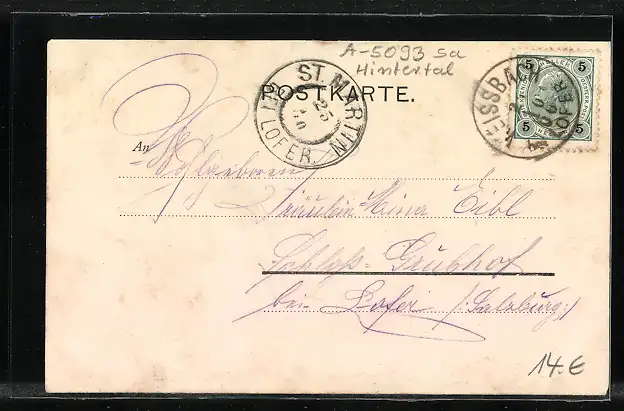 A-5093 sa
Hintertal
POSTKARTE.
ST. MARTIN
BEI LOFER.
25
WEISSBACH
LOFER
5 5
5 5
An
Wohlgeboren
Fräulein Mina Eibl
Schloß Grubhof
bei Lofer /:Salzburg:/
14.€